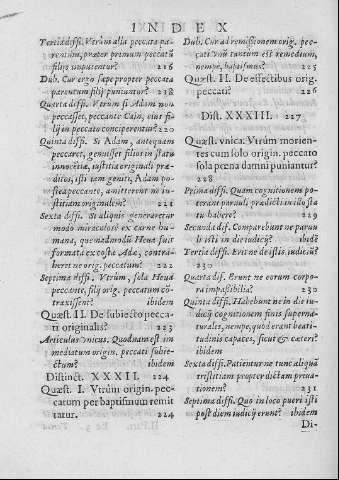 INDEX
Tertia diffi. Vtrùm alia peccata pa-
rentum, præter primum peccatũ
filijs imputentur? 216
Dub. Cur ergo sæpe propter peccata
parentum filij puniuntur? 218
Quarta diffi. Vtrum si Adam non
peccasset, peccante Cain, eius fi-
lij in peccato conciperentur? 220
Quinta diffi. Si Adam, antequam
peccaret, genuisset filios in statu
innocētiæ, iustitia originali præ-
ditos, isti tam geniti, Adam po-
stea peccante, amitterent ne iu-
stitiam originalem? 221
Sexta diffi. Si aliquis generaretur
modo miraculosi ex carne hu-
mana, quemadmodũ Heua fuit
formata ex costa Adæ, contra-
heret ne orig. peccatum? 222
Septima diffi. Vtrùm, sola Heua
peccante, filij orig. peccatum cõ-
traxissent? ibidem
Quæst. II. De subiecto pecca-
ti originalis? 223
Articulus vnicus. Quodnam est im
mediatum origin. peccati subie-
ctum? ibidem
Distinct. XXXII. 224
Quæst. I. Vtrùm origin. pec-
catum per baptismum remit
tatur. 224
Dub. Cur ad remissionem orig. pec-
cati non tantum est remedium,
nempe, baptismus? 225
Quæst. II. De effectibus orig.
peccati? 226
Dist. XXXIII. 227
Quæst. vnica. Vtrùm morien-
tes cum solo origin. peccato
sola pœna damni puniantur?
228
Prima diffi. Quam cognitionem po-
terant paruuli prædicti in illo sta
tu habere? 229
Secunda dif. Comparebunt ne paruu
li isti in die iudicij? ibidẽ
Tertia diffi. Erit ne de istis iudiciũ?
230
Quarta dif. Erunt ne eorum corpo-
ra impassibilia? 230
Quinta diffi. Habebunt ne in die iu-
dicij cognitionem finis superna-
turalis, nempe, quod erant beati-
tudinis capaces, sicut & cæteri?
ibidem
Sexta diffi. Patientur ne tunc aliquã
tristitiam propter dictam priua-
tionem? 231
Septima diffi. Quo in loco pueri isti
post diem iudicij erunt? ibidem
Di-